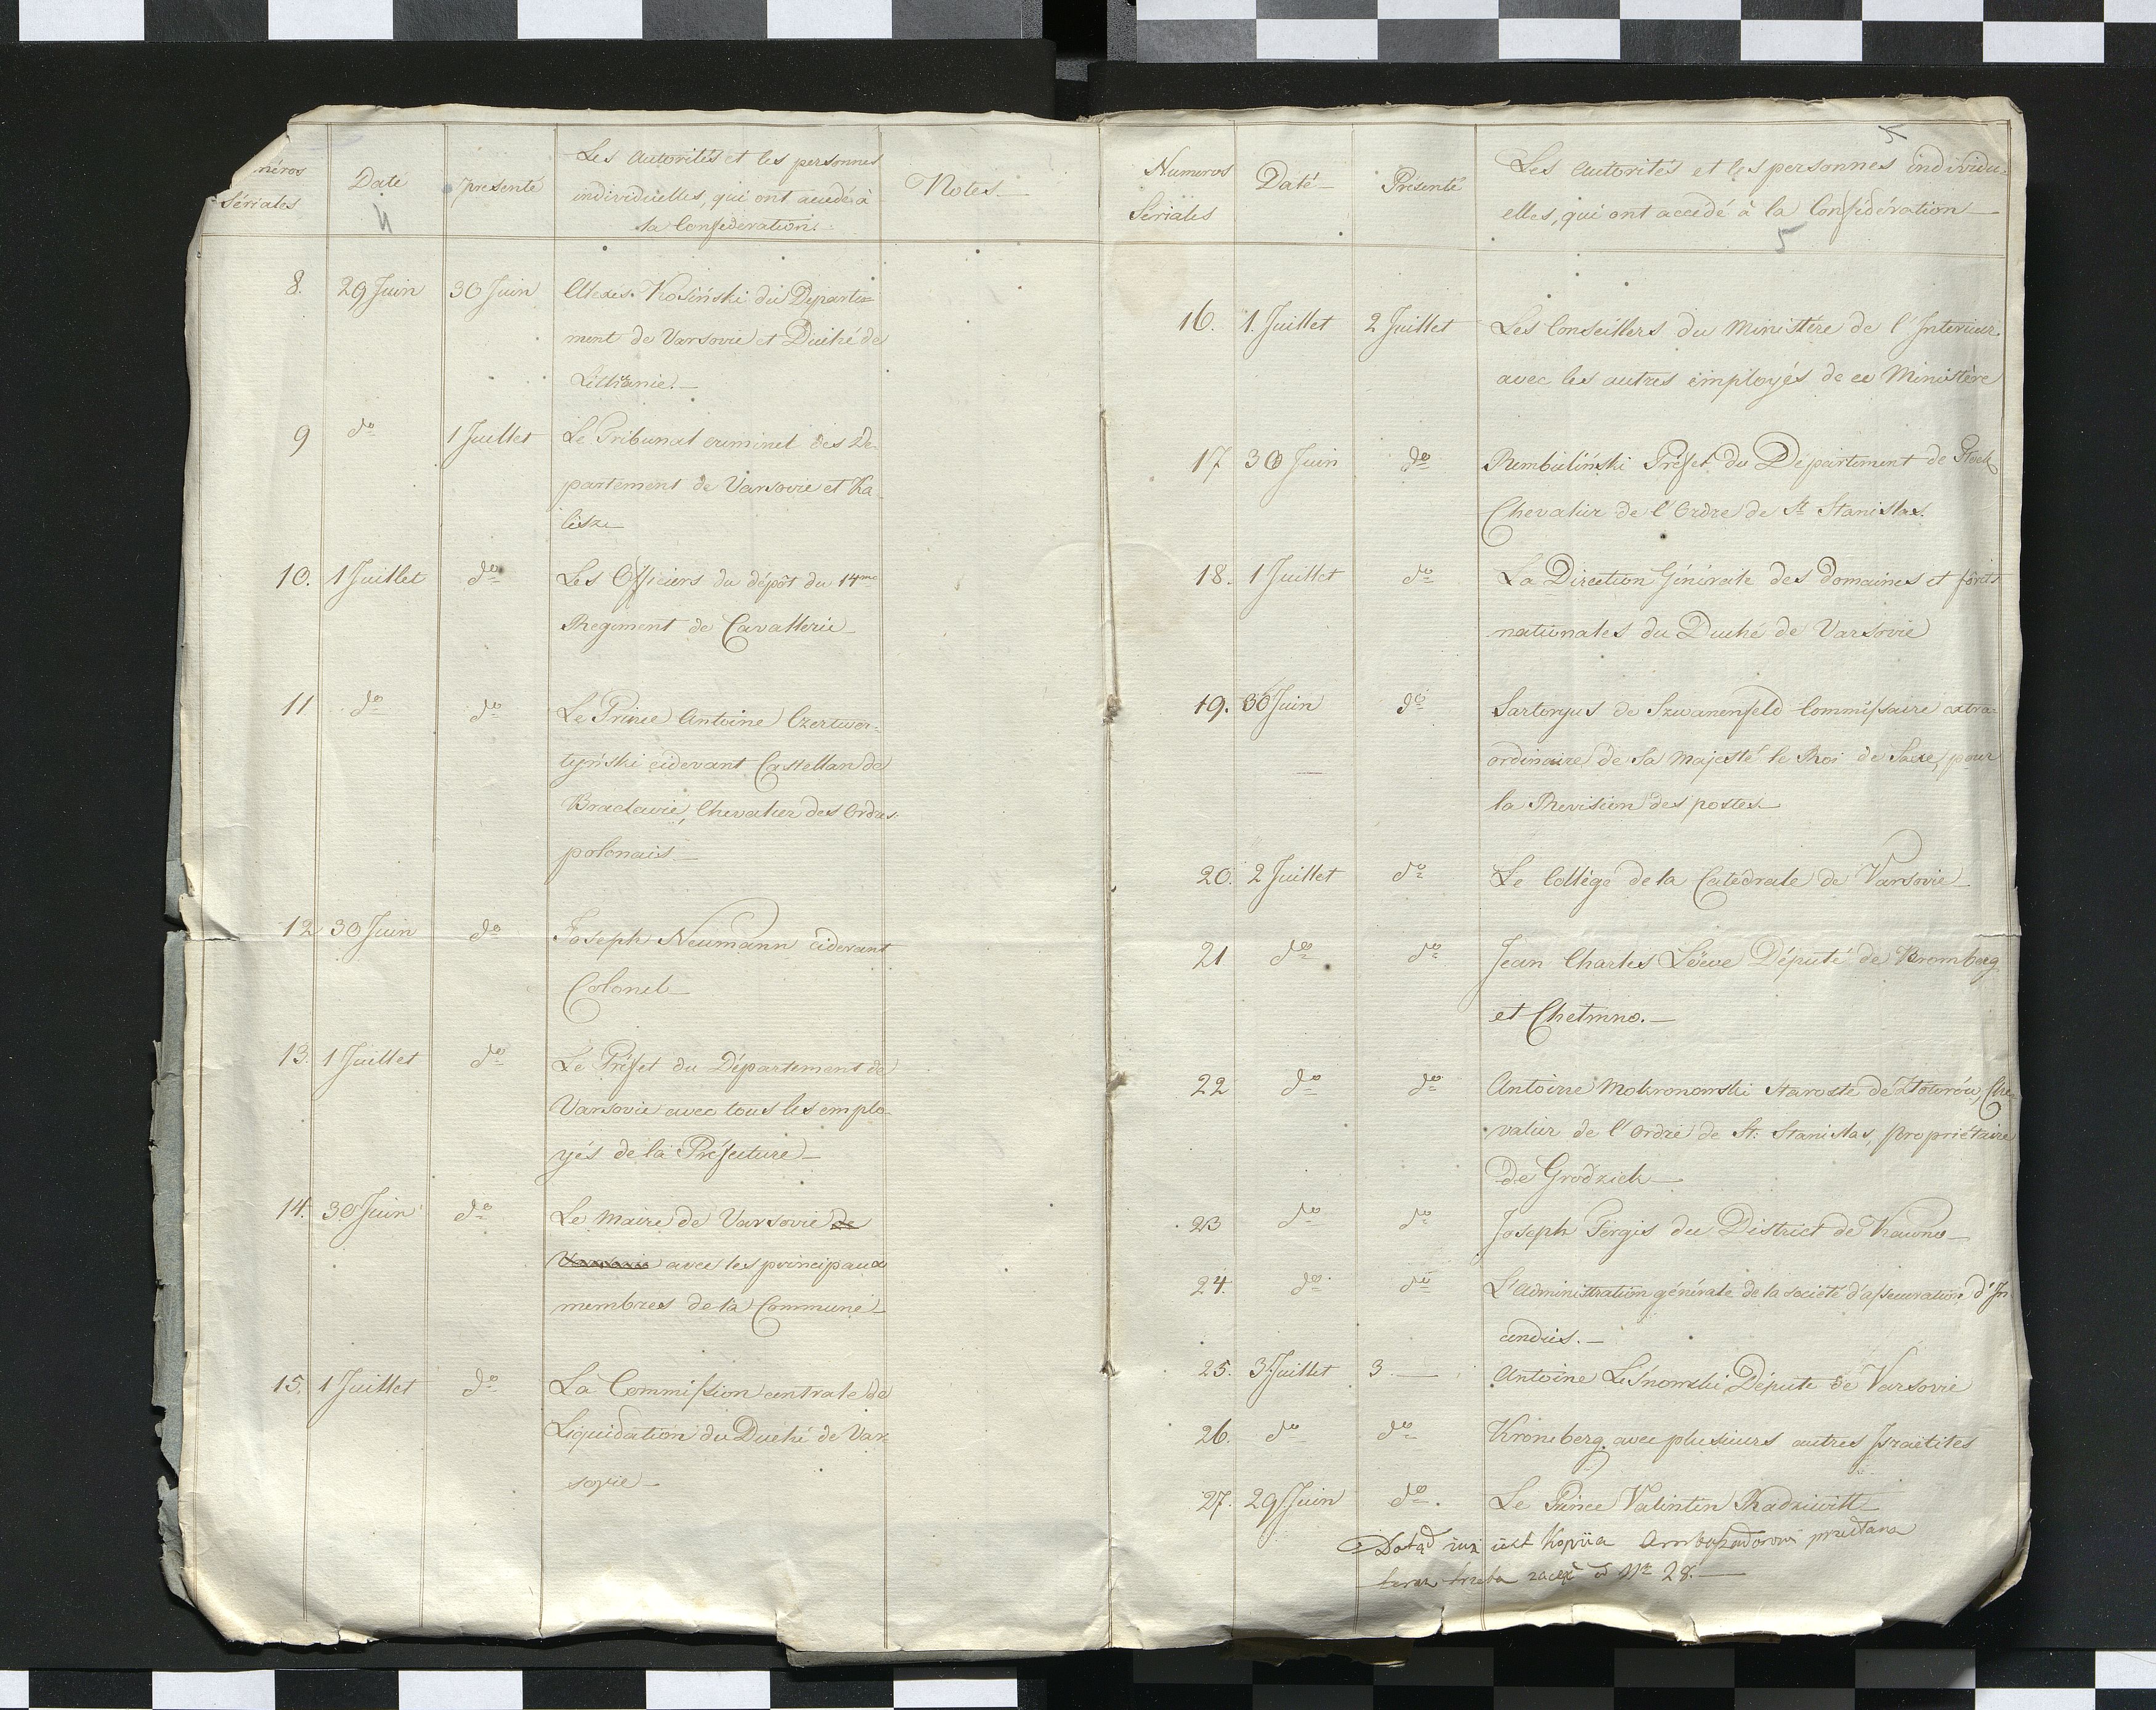 néros
Sériales
Daté
4
présenté
Les autorités et les personnes
individuelles, qui ont accédé à
la Confédération.
Notes
8. 29 Juin 30 Juin Alexis Kosiński du Departe-
ment de Varsovie et Duché de
Lithuanie.
9 do 1 Juillet Le Tribunal criminel des De-
partement de Varsovie et Ka-
lisze
10. 1 Juillet do Les Officiers du dépôt du 14me
Regiment de Cavallerie
11 do do Le Prince Antoine Czertwer-
tyński cidevant Castellan de
Braclavie, Chevalier des Ordres
polonais
12 30 Juin do Joseph Neumann cidevant
Colonel
13. 1 Juillet do Le Préfet du Département de
Varsovie avec tous les emplo-
yés de la Préfecture
14. 30 Juin do Le Maire de Varsovie de
Varsovie avec les principaux
membres de la Commune
15. 1 Juillet do La Commission centrale de
Liquidation du Duché de Var-
sovie
5
Numeros
Sériales
Daté
Présenté
Les autorités et les personnes individu-
elles, qui ont accédé à la Confédération
5
16. 1. Juillet 2 Juillet Les Conseillers du Ministère de l'Interieur
avec les autres employés de ce Ministère
17 30 Juin do Rembieliński Préfet du Département de Płock
Chevalier de l'Ordre de St Stanislas.
18. 1 Juillet do La Direction Générale des domaines et forêts
nationales du Duché de Varsovie
19. 30 Juin do Sartoryus de Szwanenfeld Commissaire extra-
ordinaire de Sa Majesté le Roi de Saxe, pour
la Revision des postes
20. 2 Juillet do Le Collège de la Catedrale de Varsovie
21 do do Jean Charles Loewe Député de Bromberg
et Chełmno.
22 do do Antoine Mokronowski Staroste de Tłotorów, Che-
valier de l'Ordre de St: Stanislas, Propriétaire
de Grodzick
23 do do Joseph Gorgis du District de Kowno
24. do do L'Administration générale de la société d'assecuration d'In
cendies.
25. 3 Juillet 3. Antoine Leśnowski Député de Varsovie
26. do do Kroneberg avec plusieurs autres Israëlites
27. 29 Juin do. Le Prince Valentin Radziwiłł
Dotąd iuż iest Kopiia Ambassadorowi przesłana
teraz trzeba zacząć od Nr 28.